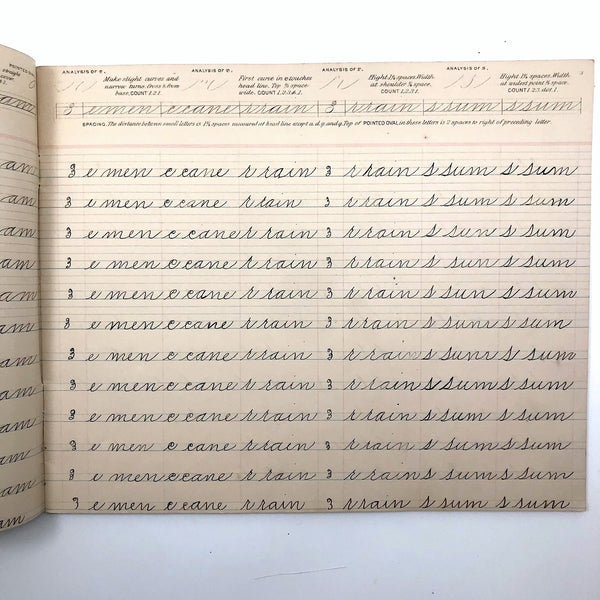 ANALYSIS OF e. Make slight curves and narrow turns. ANALYSIS OF c. First curve in c touches head line. Top ANALYSIS OF r. Hight 1¼ spaces. Width at shoulder ANALYSIS OF s. Hight 1¼ spaces. Width at widest point
COUNT 1.2.1. COUNT COUNT 1.2.3.1. COUNT 1.2.3. dot.1.
3 e men c cane r rain 3 r rain s sum s sum
SPACING. The distance between small letters is spaces measured at head line except a. d. g. and q. Top of POINTED OVAL in these letters is 2 spaces to right of preceding letter.
am 3 e men c cane r rain 3 r rain s sum s sum
am 3 e men c cane r rain 3 r rain s sum s sum
am 3 e men c cane r rain 3 r rain s sum s sum
am 3 e men c cane r rain 3 r rain s sum s sum
am 3 e men c cane r rain 3 r rain s sum s sum
am 8 e men c cane r rain 3 r rain s sum s sum
am 3 e men c cane r rain 3 r rain s sum s sum
am 3 e men c cane r rain 3 r rain s sum s sum
am 3 e men c cane r rain 3 r rain s sum s sum
am 3 e men c cane r rain 3 r rain s sum s sum
am 3 e men c cane r rain 3 r rain s sum s sum
am 3 e men c cane r rain 3 r rain s sum s sum